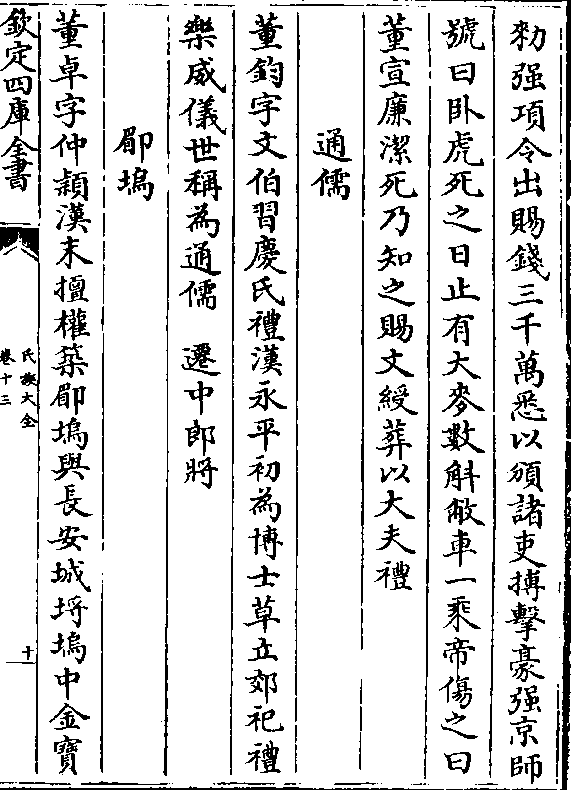 勑强項令出賜錢三千萬悉以頒諸吏搏擊豪强京師
號曰卧虎死之日止有大麥數斛敝車一乘帝傷之曰
董宣廉潔死乃知之賜文綬葬以大夫禮
通儒
董鈞字文伯習慶氏禮漢永平初為博士草立郊祀禮
樂威儀世稱為通儒 遷中郎將
郿塢
董卓字仲頴漢末擅權築郿塢與長安城埒塢中金寶
欽定四庫全書
氏族大全
卷十三
十